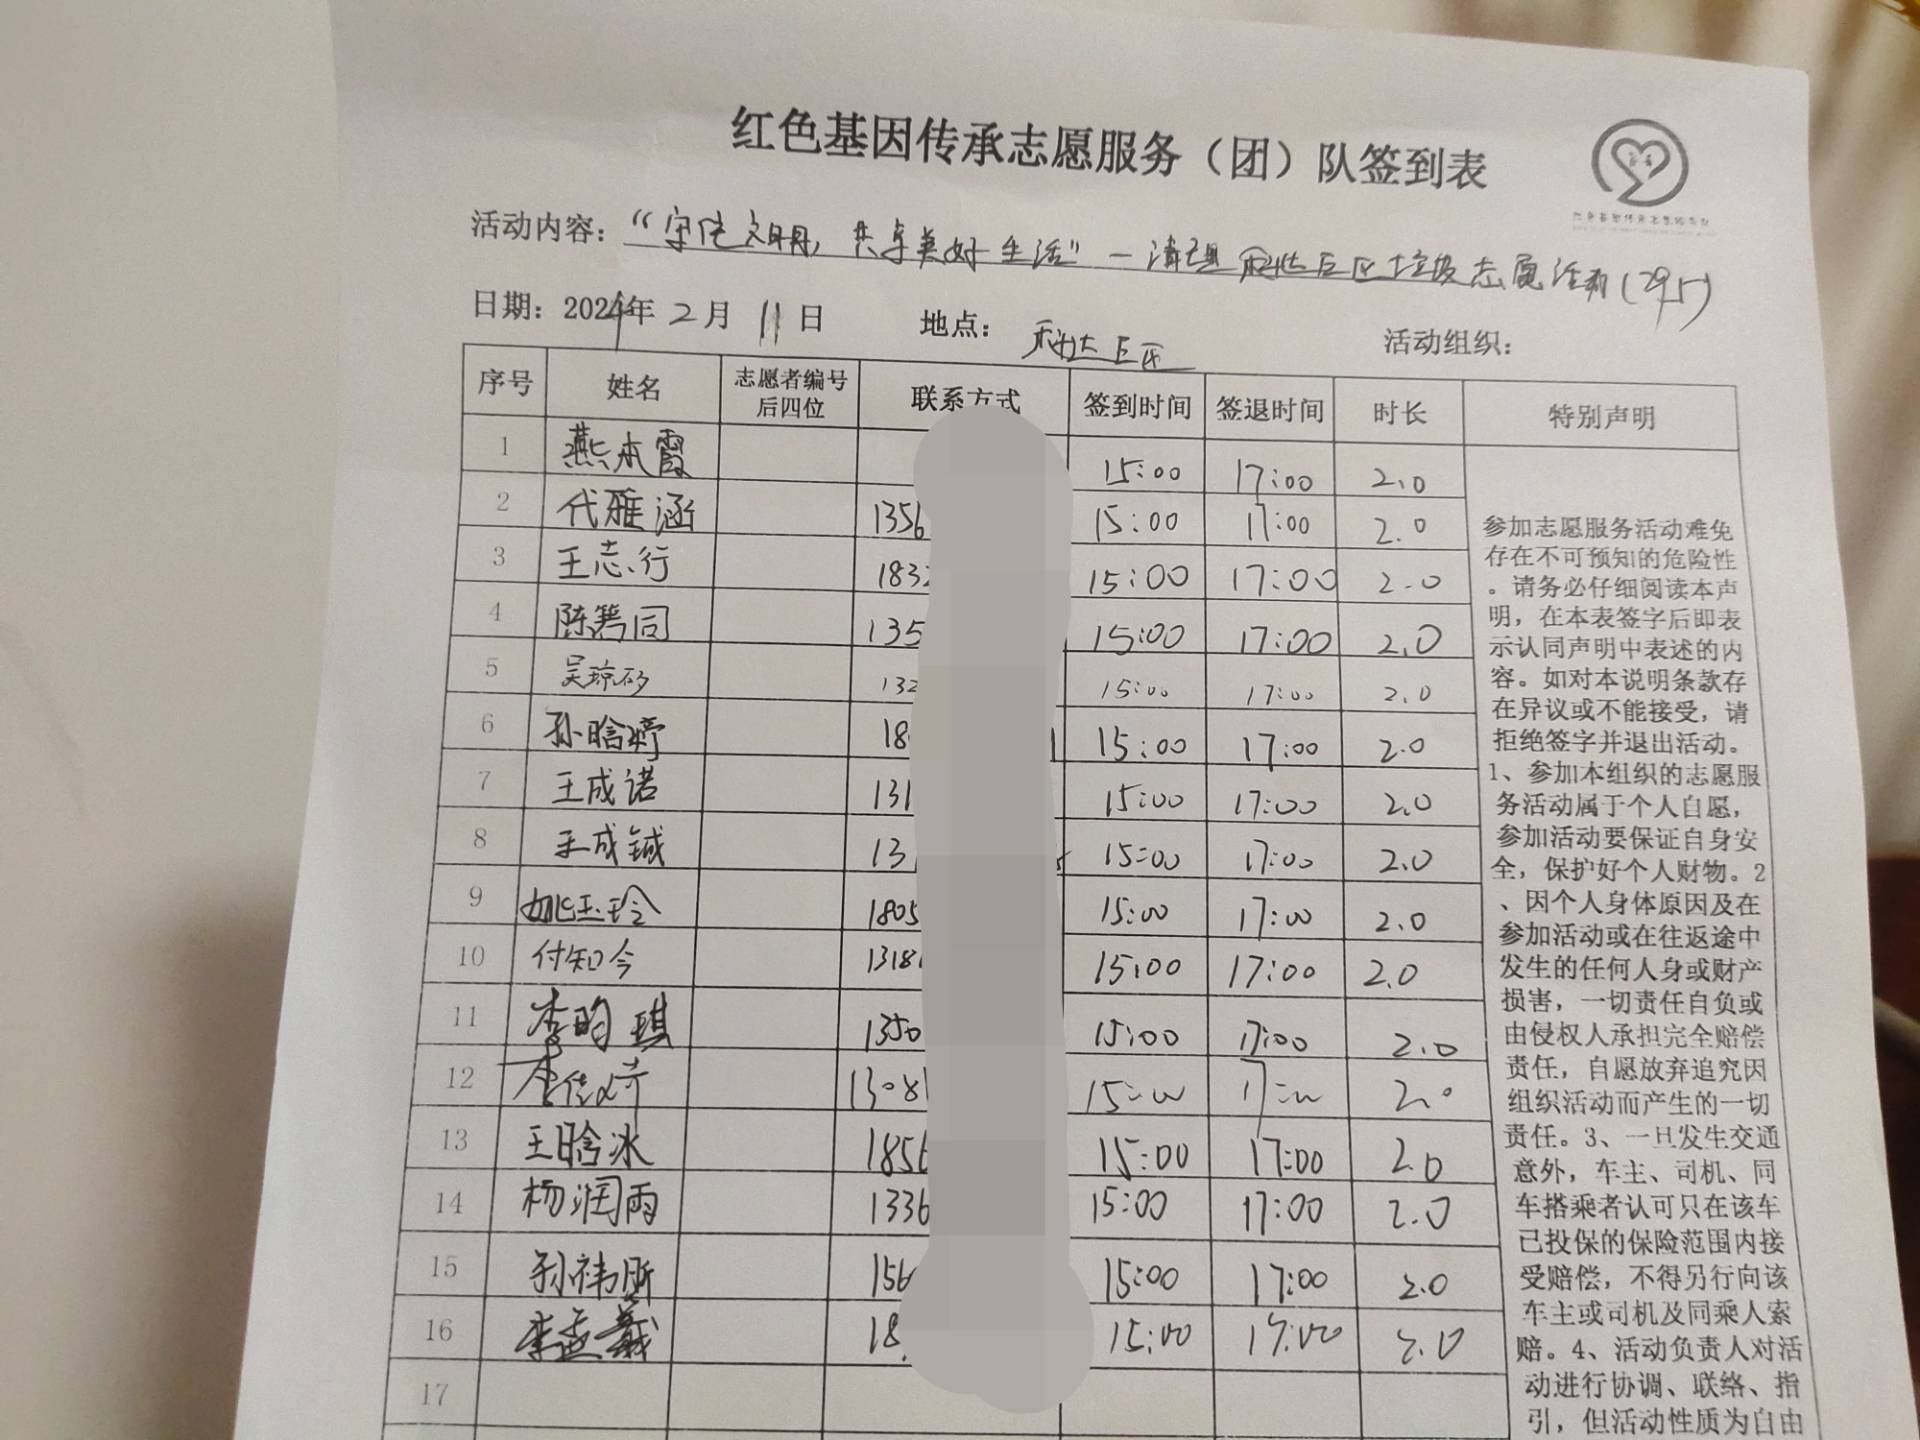 红色基因传承志愿服务（团）队签到表
活动内容：“守住文明，共享美好生活”—清理 社区垃圾志愿活动(295)
日期：2024年2月11日 地点： 活动组织：
序号 姓名 志愿者编号后四位 联系方式 签到时间 签退时间 时长 特别声明
1 燕本霞 15:00 17:00 2.0
2 代雅涵 1356 15:00 17:00 2.0
3 王志行 183 15:00 17:00 2.0
4 陈笃同 135 15:00 17:00 2.0
5 吴琼 132 15:00 17:00 2.0
6 孙晗婷 18 15:00 17:00 2.0
7 王成诺 131 15:00 17:00 2.0
8 王成铖 13 15:00 17:00 2.0
9 姚玉玲 1805 15:00 17:00 2.0
10 付知今 1318 15:00 17:00 2.0
11 李昀琪 1350 15:00 17:00 2.0
12 李 1308 15:00 17:00 2.0
13 王晗冰 1856 15:00 17:00 2.0
14 杨润雨 1336 15:00 17:00 2.0
15 孙祎 156 15:00 17:00 2.0
16 李孟羲 18 15:00 17:00 2.0
17
参加志愿服务活动难免
存在不可预知的危险性
。请务必仔细阅读本声
明，在本表签字后即表
示认同声明中表述的内
容。如对本说明条款存
在异议或不能接受，请
拒绝签字并退出活动。
1、参加本组织的志愿服
务活动属于个人自愿，
参加活动要保证自身安
全，保护好个人财物。2
、因个人身体原因及在
参加活动或在往返途中
发生的任何人身或财产
损害，一切责任自负或
由侵权人承担完全赔偿
责任，自愿放弃追究因
组织活动而产生的一切
责任。3、一旦发生交通
意外，车主、司机、同
车搭乘者认可只在该车
已投保的保险范围内接
受赔偿，不得另行向该
车主或司机及同乘人索
赔。4、活动负责人对活
动进行协调、联络、指
引，但活动性质为自由